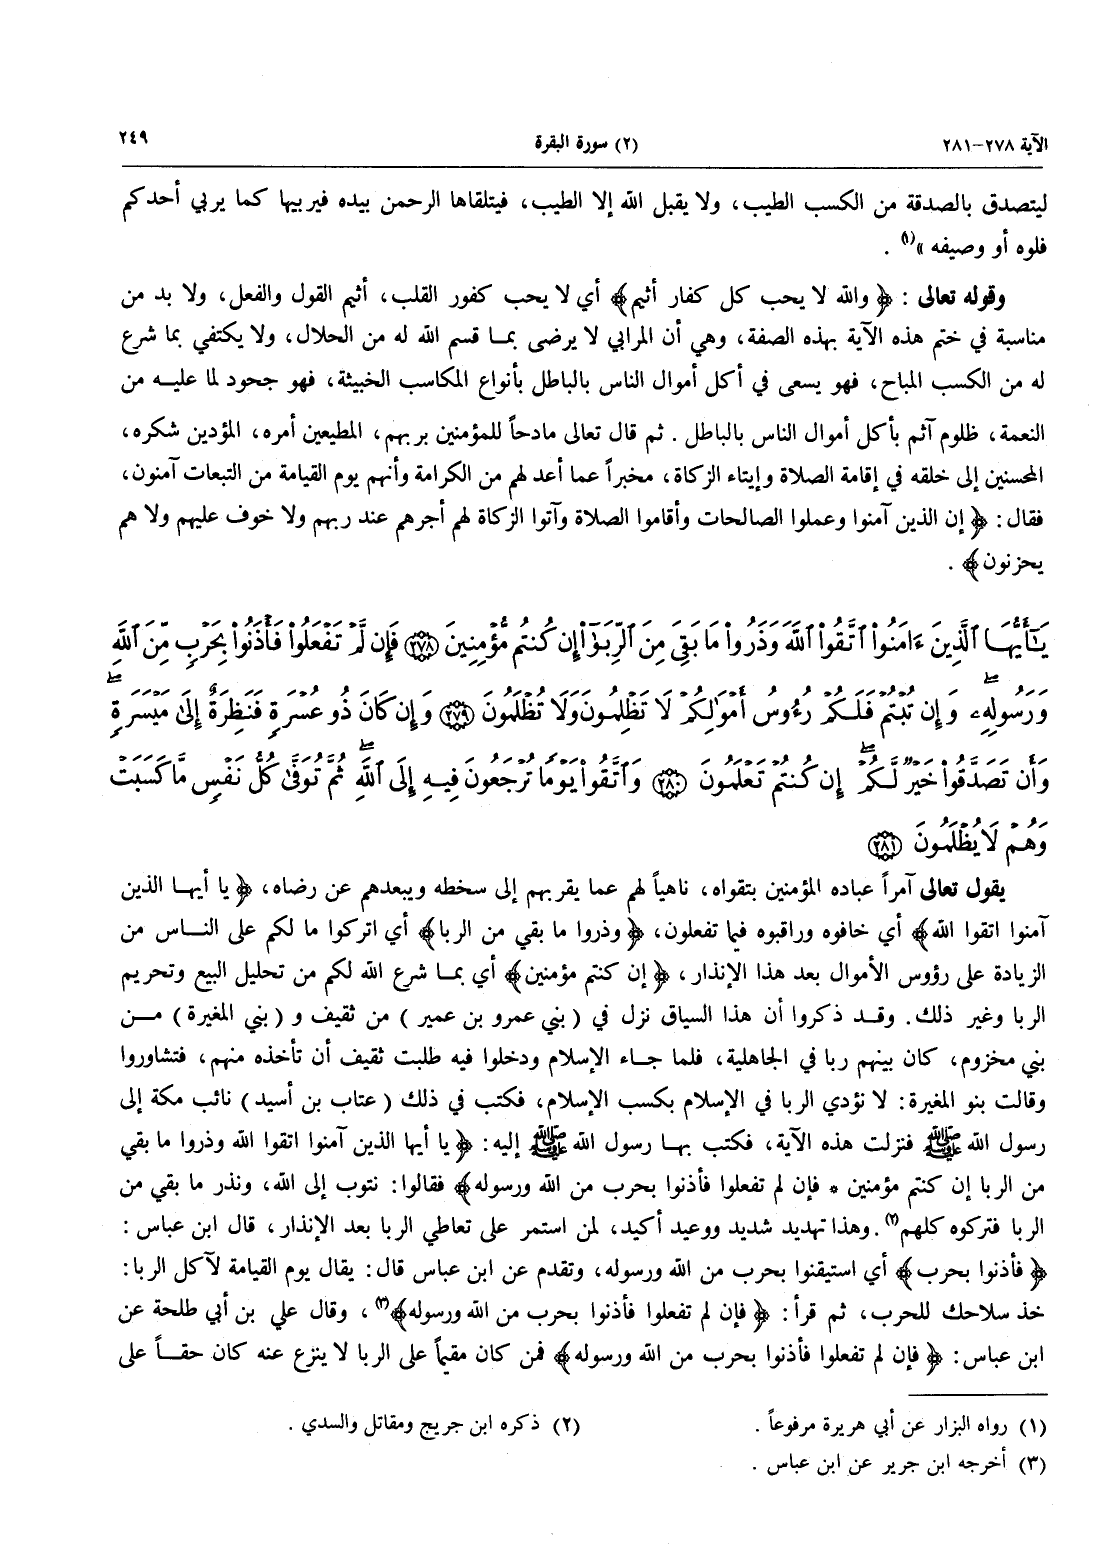 الآية ٢٧٨-٢٨١ (٢) سورة البقرة ٢٤٩
ليتصدق بالصدقة من الكسب الطيب، ولا يقبل الله إلا الطيب، فيتلقاها الرحمن بيده فيربيها كما يربي أحدكم
فلوه أو وصيفه »(١) .
وقوله تعالى : ﴿ والله لا يحب كل كفار أثيم﴾ أي لا يحب كفور القلب، أثيم القول والفعل، ولا بد من
مناسبة في ختم هذه الآية بهذه الصفة، وهي أن المرابي لا يرضى بمـا قسم الله له من الحلال، ولا يكتفي بما شرع
له من الكسب المباح، فهو يسعى في أكل أموال الناس بالباطل بأنواع المكاسب الخبيثة، فهو جحود لما عليـه من
النعمة، ظلوم آثم بأكل أموال الناس بالباطل . ثم قال تعالى مادحاً للمؤمنين بربهم، المطيعين أمره، المؤدين شكره،
المحسنين إلى خلقه في إقامة الصلاة وإيتاء الزكاة، مخبراً عما أعد لهم من الكرامة وأنهم يوم القيامة من التبعات آمنون،
فقال: ﴿ إن الذين آمنوا وعملوا الصالحات وأقاموا الصلاة وآتوا الزكاة لهم أجرهم عند ربهم ولا خوف عليهم ولا هم
يحزنون﴾ .
يَـٰٓأَيُّهَا ٱلَّذِينَ ءَامَنُوا۟ ٱتَّقُوا۟ ٱللَّهَ وَذَرُوا۟ مَا بَقِىَ مِنَ ٱلرِّبَوٰٓا۟ إِن كُنتُم مُّؤْمِنِينَ ٢٧٨ فَإِن لَّمْ تَفْعَلُوا۟ فَأْذَنُوا۟ بِحَرْبٍ مِّنَ ٱللَّهِ
وَرَسُولِهِۦ ۖ وَإِن تُبْتُمْ فَلَكُمْ رُءُوسُ أَمْوَٰلِكُمْ لَا تَظْلِمُونَ وَلَا تُظْلَمُونَ ٢٧٩ وَإِن كَانَ ذُو عُسْرَةٍ فَنَظِرَةٌ إِلَىٰ مَيْسَرَةٍ ۚ
وَأَن تَصَدَّقُوا۟ خَيْرٌ لَّكُمْ ۖ إِن كُنتُمْ تَعْلَمُونَ ٢٨٠ وَٱتَّقُوا۟ يَوْمًا تُرْجَعُونَ فِيهِ إِلَى ٱللَّهِ ۖ ثُمَّ تُوَفَّىٰ كُلُّ نَفْسٍ مَّا كَسَبَتْ
وَهُمْ لَا يُظْلَمُونَ ٢٨١
يقول تعالى آمراً عباده المؤمنين بتقواه، ناهياً لهم عما يقربهم إلى سخطه ويبعدهم عن رضاه، ﴿ يا أيهـا الذين
آمنوا اتقوا الله﴾ أي خافوه وراقبوه فيما تفعلون، ﴿ وذروا ما بقي من الربا﴾ أي اتركوا ما لكم على النـاس من
الزيادة على رؤوس الأموال بعد هذا الإنذار ، ﴿ إن كنتم مؤمنين﴾ أي بمـا شرع الله لكم من تحليل البيع وتحريم
الربا وغير ذلك. وقـد ذكروا أن هذا السياق نزل في ( بني عمرو بن عمير ) من ثقيف و ( بني المغيرة ) مـن
بني مخزوم، كان بينهم ربا في الجاهلية، فلما جـاء الإسلام ودخلوا فيه طلبت ثقيف أن تأخذه منهم، فتشاوروا
وقالت بنو المغيرة: لا نؤدي الربا في الإسلام بكسب الإسلام، فكتب في ذلك ( عتاب بن أسيد ) نائب مكة إلى
رسول الله ﷺ فنزلت هذه الآية، فكتب بهـا رسول الله ﷺ إليه: ﴿ يا أيها الذين آمنوا اتقوا الله وذروا ما بقي
من الربا إن كنتم مؤمنين * فإن لم تفعلوا فأذنوا بحرب من الله ورسوله﴾ فقالوا: نتوب إلى الله، ونذر ما بقي من
الربا فتركوه كلهم(٢). وهذا تهديد شديد ووعيد أكيد، لمن استمر على تعاطي الربا بعد الإنذار، قال ابن عباس :
﴿ فأذنوا بحرب﴾ أي استيقنوا بحرب من الله ورسوله، وتقدم عن ابن عباس قال: يقال يوم القيامة لآكل الربا:
خذ سلاحك للحرب، ثم قرأ: ﴿ فإن لم تفعلوا فأذنوا بحرب من الله ورسوله﴾(٣) ، وقال علي بن أبي طلحة عن
ابن عباس: ﴿ فإن لم تفعلوا فأذنوا بحرب من الله ورسوله﴾ فمن كان مقيماً على الربا لا ينزع عنه كان حقـاً على
(١) رواه البزار عن أبي هريرة مرفوعاً . (٢) ذكره ابن جريج ومقاتل والسدي .
(٣) أخرجه ابن جرير عن ابن عباس .